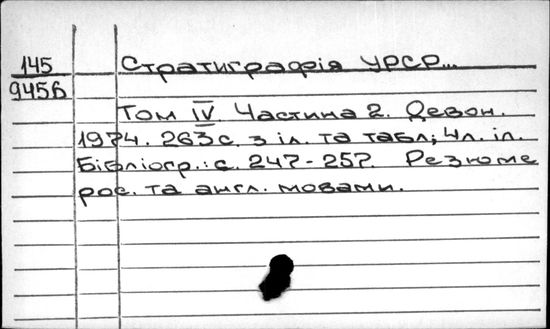 145
945Б
Стратиграфія УРСР...
Том IV Частина 2. Девон.
1974. 263 с. з іл. та табл; 4 л. іл.
Бібліогр.: с. 247-257. Резюме
рос. та англ. мовами.